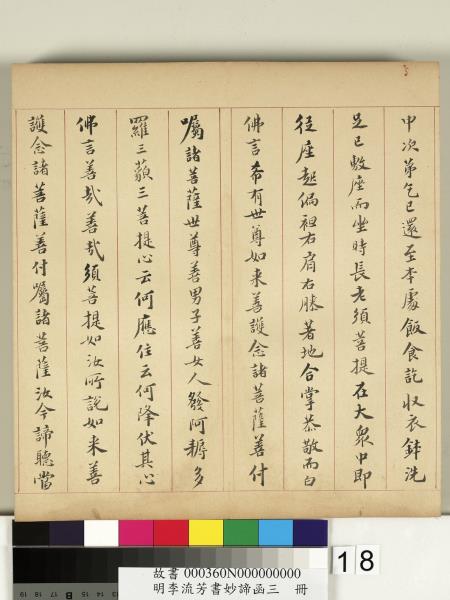 中次第乞已還至本處飯食訖收衣鉢洗
足已敷座而坐時長老須菩提在大衆中即
從座起偏袒右肩右膝著地合掌恭敬而白
佛言希有世尊如来善護念諸菩薩善付
囑諸菩薩世尊善男子善女人發阿耨多
羅三藐三菩提心云何應住云何降伏其心
佛言善哉善哉須菩提如汝所說如来善
護念諸菩薩善付囑諸菩薩汝今諦聽當
18
故書 000360N000000000
明李流芳書妙諦函三 冊